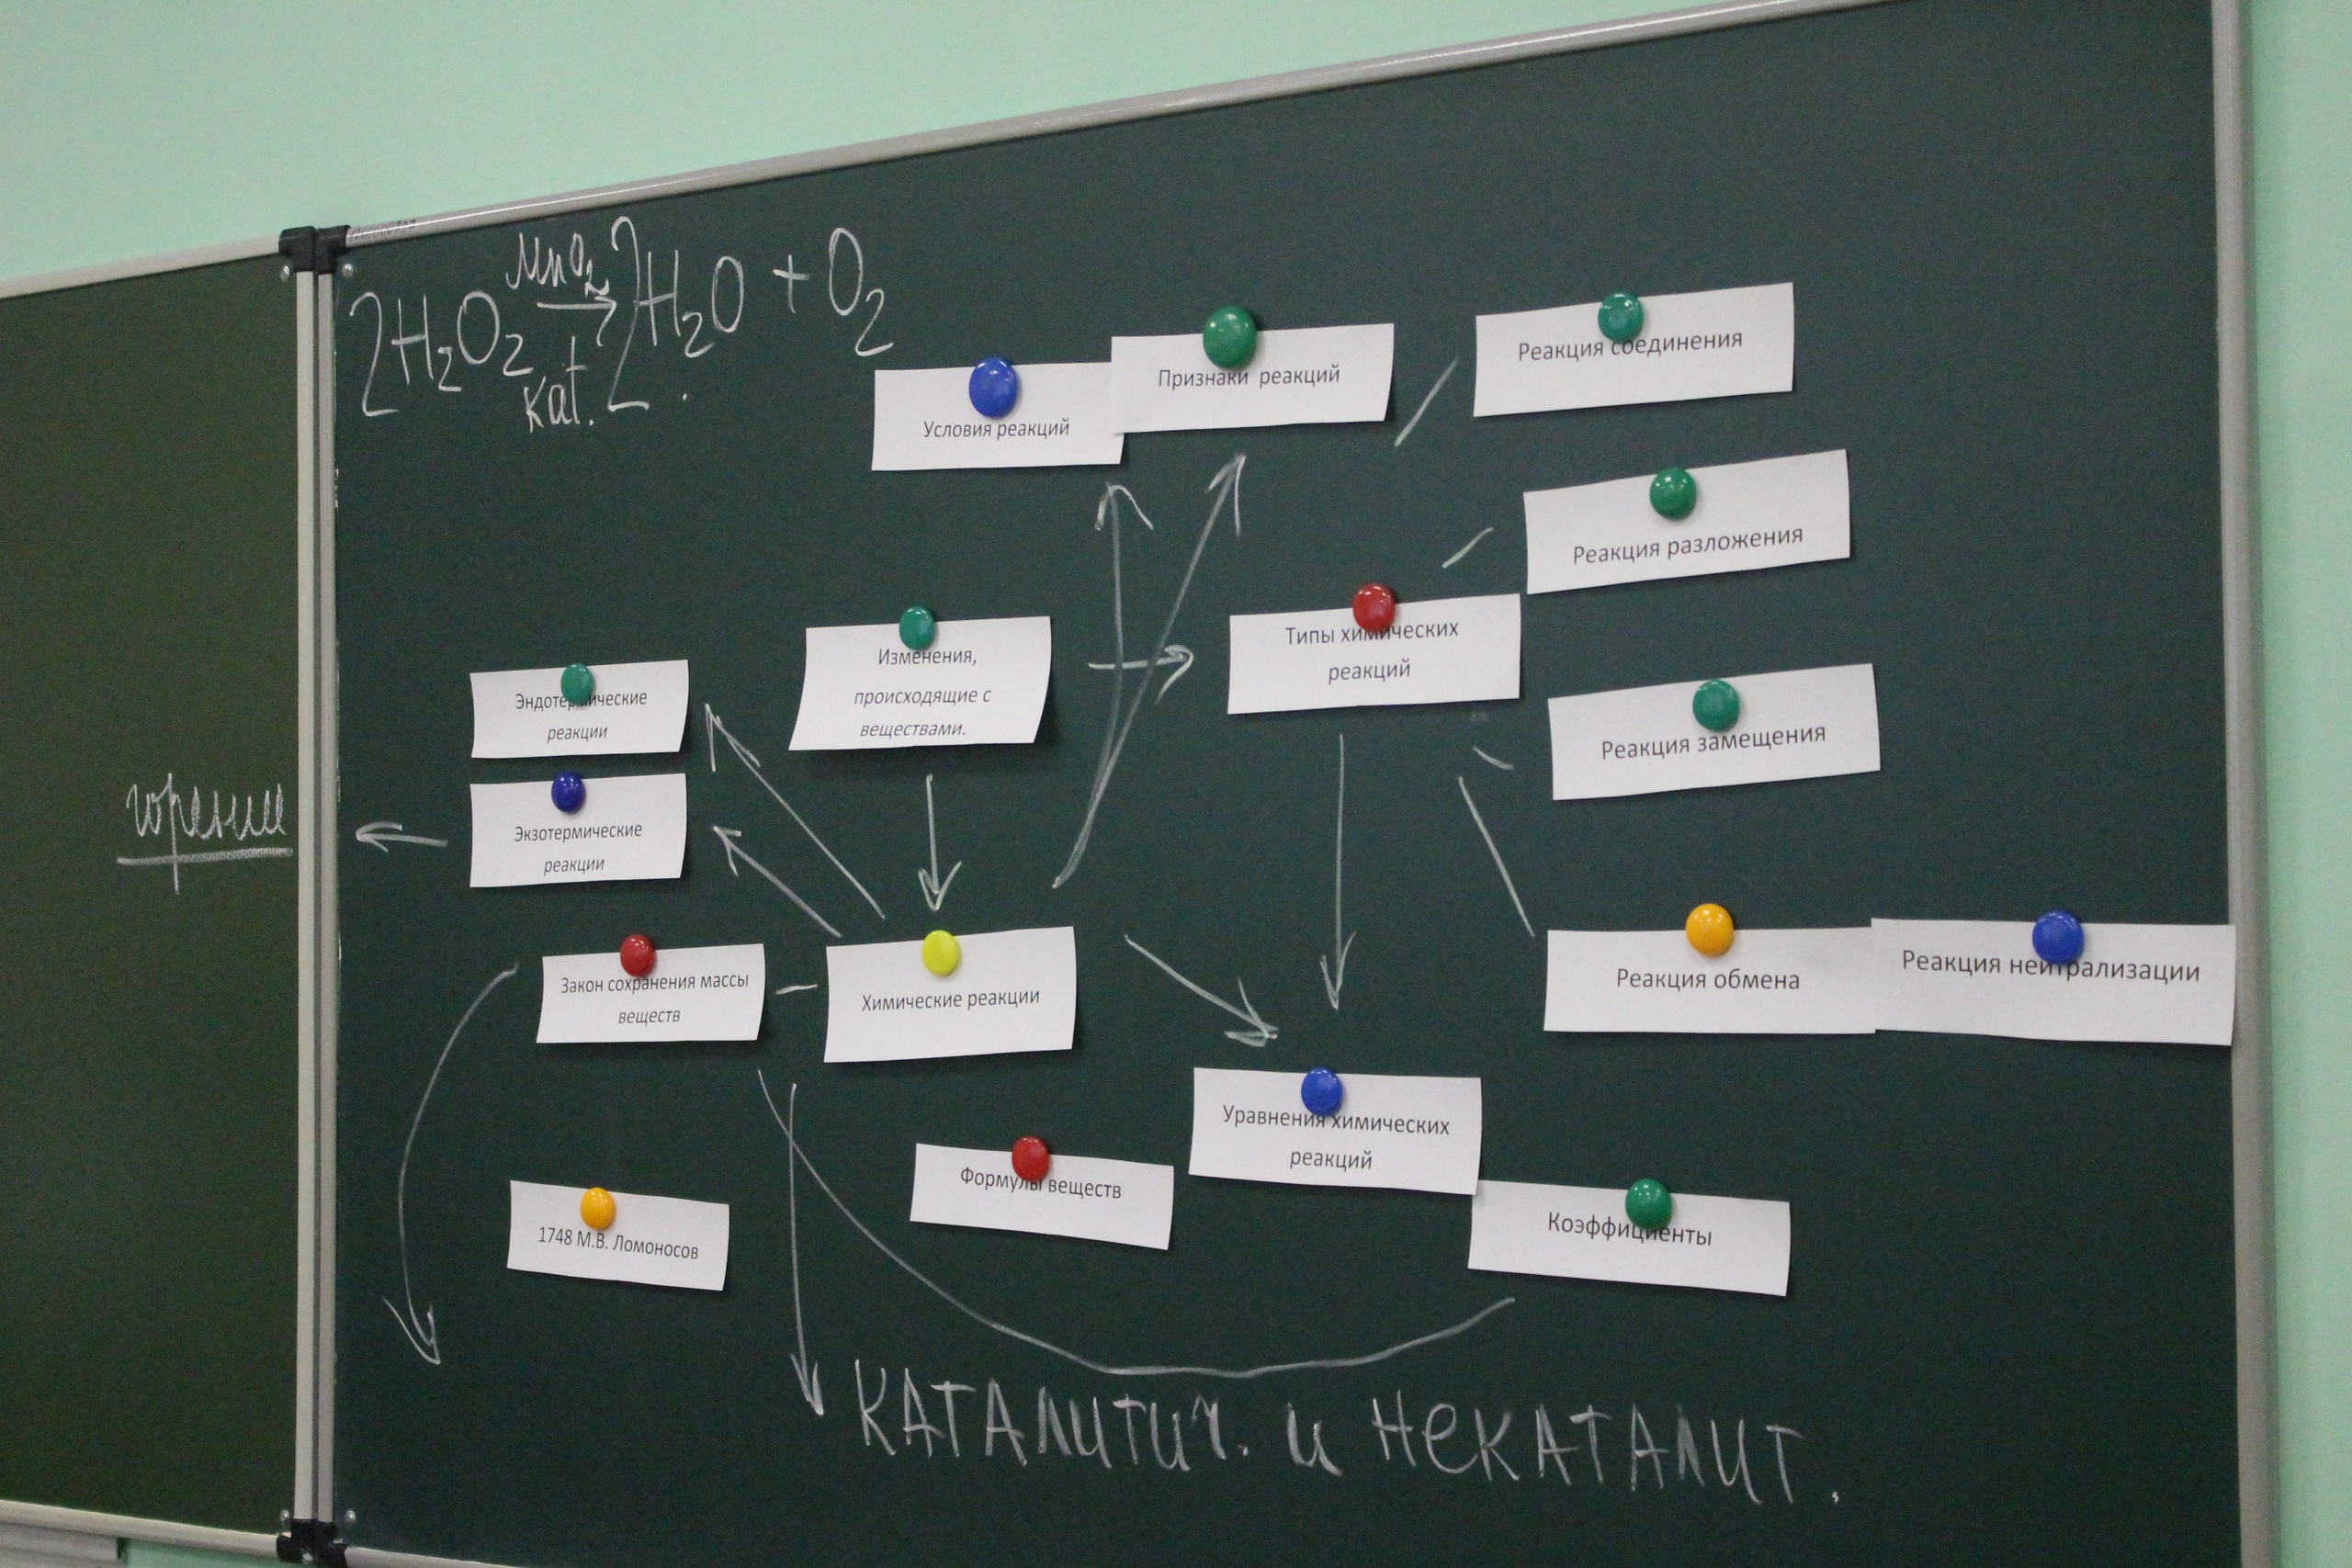 MnO2
2H2O2 → 2H2O + O2
kat.
Условия реакций
Признаки реакций
Реакция соединения
Реакция разложения
Типы химических
реакций
Изменения,
происходящие с
веществами.
Эндотермические
реакции
Реакция замещения
Экзотермические
реакции
горение
Закон сохранения массы
веществ
Химические реакции
Реакция обмена
Реакция нейтрализации
Уравнения химических
реакций
Формулы веществ
Коэффициенты
1748 М.В. Ломоносов
КАТАЛИТИЧ. И НЕКАТАЛИТ.